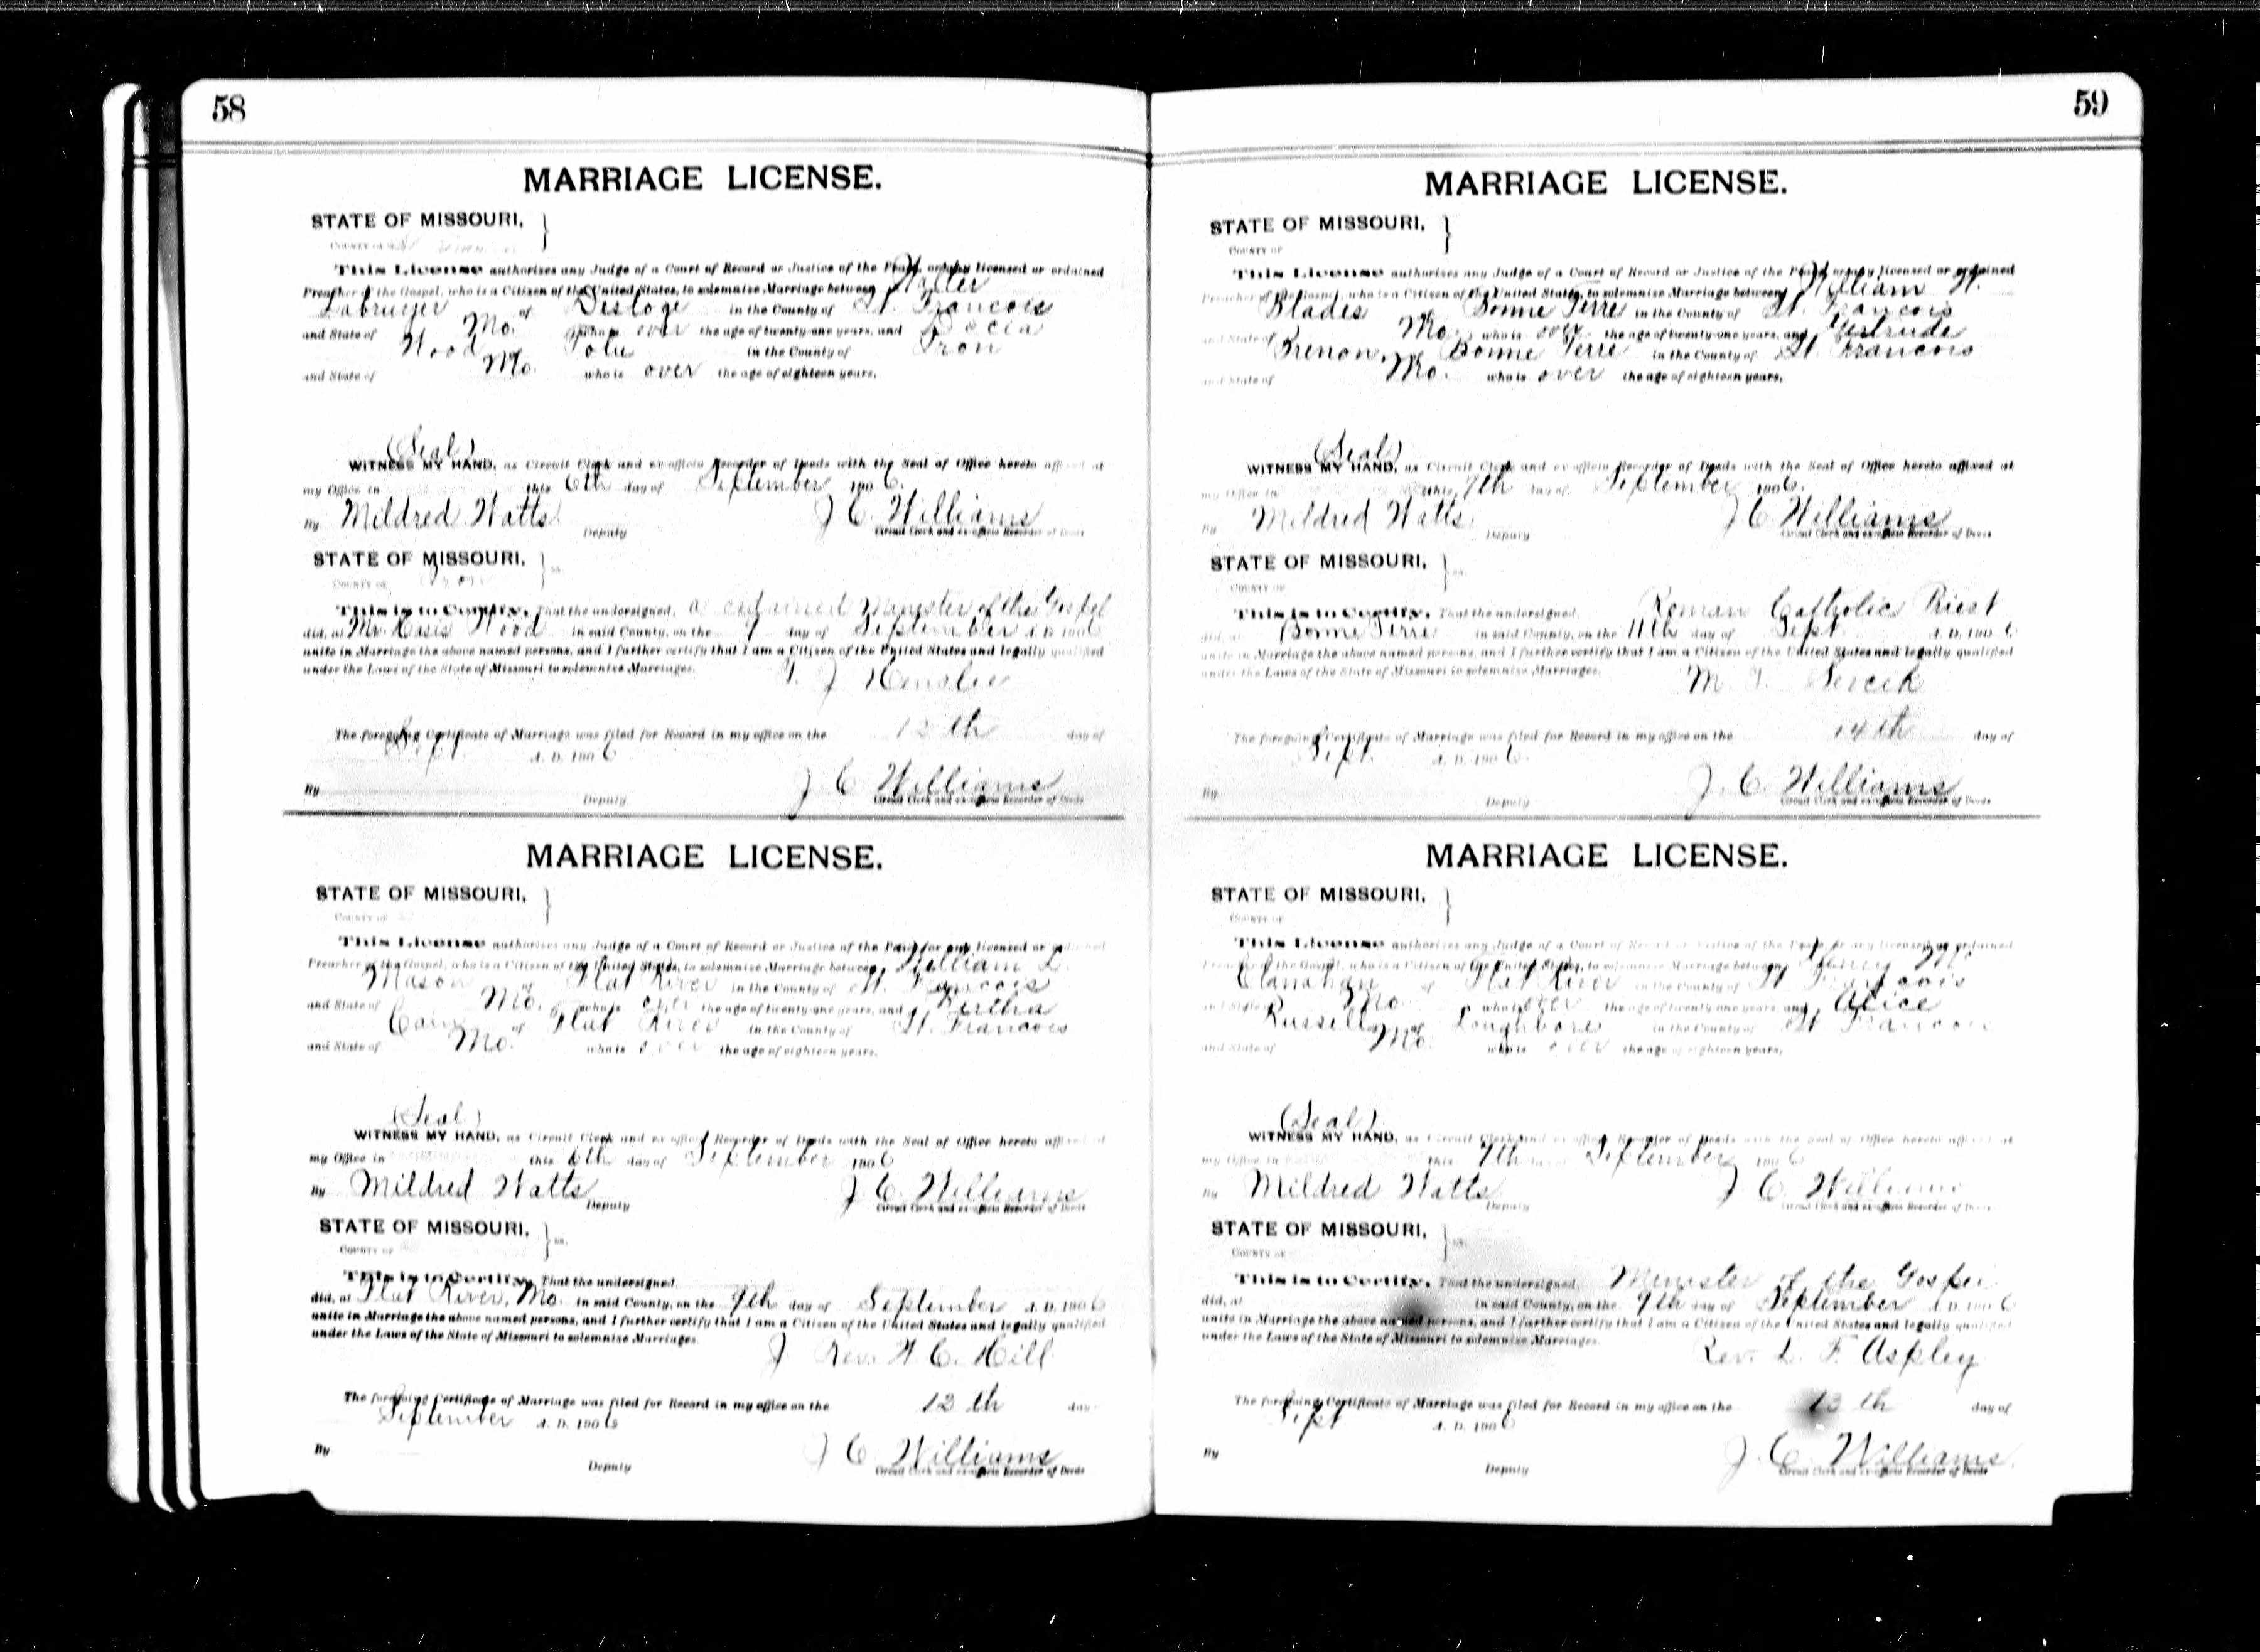 58
MARRIAGE LICENSE.
STATE OF MISSOURI,
COUNTY OF
This License authorizes any Judge of a Court of Record or Justice of the Peace, or any licensed or ordained
Preacher of the Gospel, who is a Citizen of the United States, to solemnize Marriage between Walter
Labruyer of Desloge in the County of St. Francois
and State of Mo. who is over the age of twenty-one years, and Docia
Wood of in the County of Iron
and State of Mo. who is over the age of eighteen years.
(Seal)
WITNESS MY HAND, as Circuit Clerk and ex-officio Recorder of Deeds with the Seal of Office hereto affixed at
my Office in this 6th day of September 1906.
By Mildred Watts J C. Williams
Deputy Circuit Clerk and ex-officio Recorder of Deeds
STATE OF MISSOURI, ss.
COUNTY OF Iron
This is to Certify, That the undersigned, a ordained Minister of the Gospel
did, at Mr. Wood in said County, on the 9 day of September A. D. 1906
unite in Marriage the above named persons, and I further certify that I am a Citizen of the United States and legally qualified
under the Laws of the State of Missouri to solemnize Marriages.
The foregoing Certificate of Marriage was filed for Record in my office on the 12th day of
Sept. A. D. 1906
J C Williams
By Deputy Circuit Clerk and ex-officio Recorder of Deeds
MARRIAGE LICENSE.
STATE OF MISSOURI,
COUNTY OF
This License authorizes any Judge of a Court of Record or Justice of the Peace, or any licensed or ordained
Preacher of the Gospel, who is a Citizen of the United States, to solemnize Marriage between William L.
Mason of Flat River in the County of St. Francois
and State of Mo. who is over the age of twenty-one years, and Bertha
of Flat River in the County of St. Francois
and State of Mo. who is over the age of eighteen years.
(Seal)
WITNESS MY HAND, as Circuit Clerk and ex-officio Recorder of Deeds with the Seal of Office hereto affixed at
my Office in this 6th day of September 1906
By Mildred Watts J C. Williams
Deputy Circuit Clerk and ex-officio Recorder of Deeds
STATE OF MISSOURI, ss.
COUNTY OF
This is to Certify, That the undersigned,
did, at Flat River, Mo. in said County, on the 9th day of September A. D. 1906
unite in Marriage the above named persons, and I further certify that I am a Citizen of the United States and legally qualified
under the Laws of the State of Missouri to solemnize Marriages.
Rev. W C. Hill
The foregoing Certificate of Marriage was filed for Record in my office on the 12th day
September A. D. 1906
J C Williams
By Deputy Circuit Clerk and ex-officio Recorder of Deeds
59
MARRIAGE LICENSE.
STATE OF MISSOURI,
COUNTY OF
This License authorizes any Judge of a Court of Record or Justice of the Peace, or any licensed or ordained
Preacher of the Gospel, who is a Citizen of the United States, to solemnize Marriage between William H.
Blades Bonne Terre in the County of St. Francois
and State of Mo. who is over the age of twenty-one years, and Gertrude
of Bonne Terre in the County of St. Francois
and State of Mo. who is over the age of eighteen years.
(Seal)
WITNESS MY HAND, as Circuit Clerk and ex-officio Recorder of Deeds with the Seal of Office hereto affixed at
my Office in this 7th day of September 1906.
By Mildred Watts J C. Williams
Deputy Circuit Clerk and ex-officio Recorder of Deeds
STATE OF MISSOURI, ss.
COUNTY OF
This is to Certify, That the undersigned, Roman Catholic Priest
did, at Bonne Terre in said County, on the 11th day of Sept A. D. 1906
unite in Marriage the above named persons, and I further certify that I am a Citizen of the United States and legally qualified
under the Laws of the State of Missouri to solemnize Marriages.
The foregoing Certificate of Marriage was filed for Record in my office on the 14th day of
Sept. A. D. 1906.
J. C. Williams
By Deputy Circuit Clerk and ex-officio Recorder of Deeds
MARRIAGE LICENSE.
STATE OF MISSOURI,
COUNTY OF
This License authorizes any Judge of a Court of Record or Justice of the Peace, or any licensed or ordained
Preacher of the Gospel, who is a Citizen of the United States, to solemnize Marriage between Henry Mc
Clanahan of Flat River in the County of St Francois
and State of Mo who is over the age of twenty-one years, and Alice
Russell of Loughboro in the County of St Francois
and State of Mo. who is over the age of eighteen years.
(Seal)
WITNESS MY HAND, as Circuit Clerk and ex-officio Recorder of Deeds with the Seal of Office hereto affixed at
my Office in this 7th day of September 1906
By Mildred Watts J C. Williams
Deputy Circuit Clerk and ex-officio Recorder of Deeds
STATE OF MISSOURI, ss.
COUNTY OF
This is to Certify, That the undersigned, Minister of the Gospel
did, at in said County, on the 9th day of September A. D. 1906
unite in Marriage the above named persons, and I further certify that I am a Citizen of the United States and legally qualified
under the Laws of the State of Missouri to solemnize Marriages.
Rev. L. F. Aspley
The foregoing Certificate of Marriage was filed for Record in my office on the 13th day of
Sept A. D. 1906
J. C. Williams
By Deputy Circuit Clerk and ex-officio Recorder of Deeds